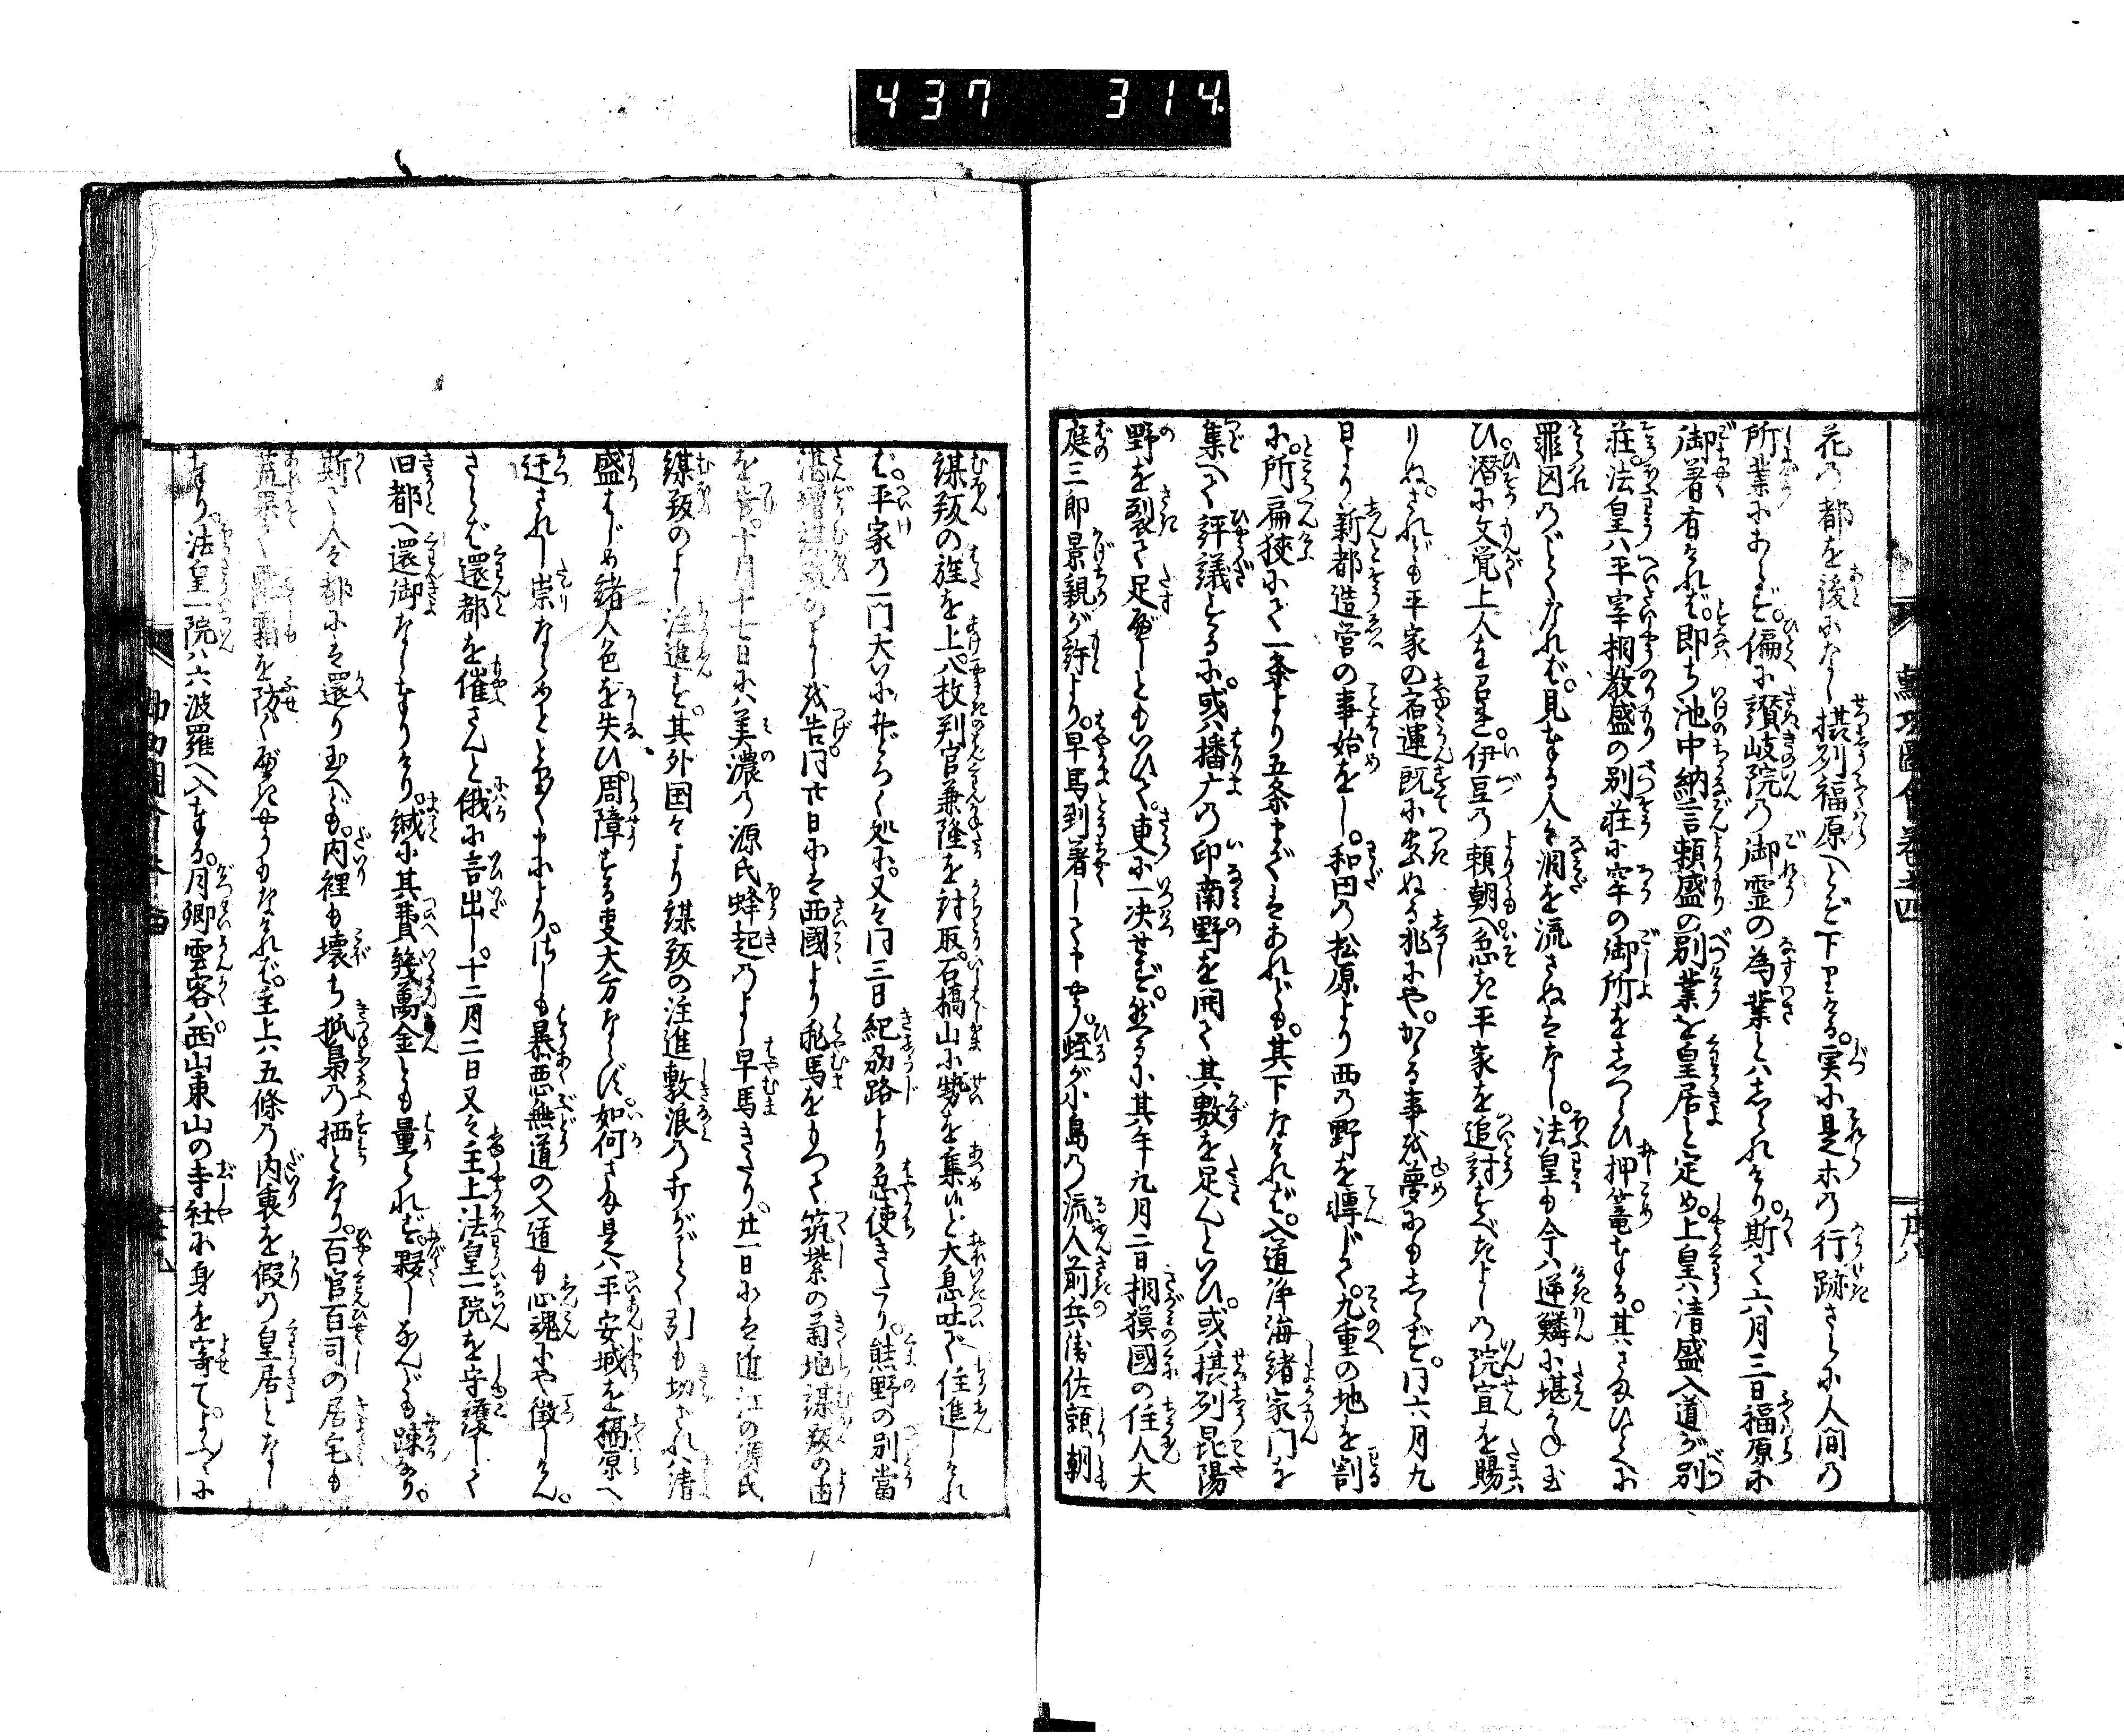 437 314
花の都を後になし摂列福原へとぞ下りける。実に是ホの行跡さらに人間の
所業にあらず。偏に讃岐院の御霊の為業とハしられけり。斯て六月三日福原に
御着有けれバ。即ち池中納言頼盛の別業を皇居と定め。上皇ハ清盛入道が別
荘。法皇ハ平宰相教盛の別荘に牢の御所をしつらひ押篭奉る。其さまひとへに
罪囚のごとくなれバ。見奉る人々涙を流さぬハなし。法皇も今ハ逆鱗に堪かね玉
ひ。潜に文覚上人を召れ。伊豆の頼朝へ急ぎ平家を追討すべきよしの院宣を賜
りぬ。されども平家の宿運既に尽ぬる兆にや。かゝる事を夢にもしらず。同六月九
日より新都造営の事始をし。和田の松原より西の野を点じて。九重の地を割
に。所扁狭にて一条より五条まではあれども。其下なけれバ。入道浄海諸家門を
集へて評議するに。或ハ播广の印南野を開て其数を足んといひ。或ハ摂列昆陽
野を裂て足べしともいひて。更に一决せず。然るに其年九月二日相摸國の住人大
庭三郎景親が許より。早馬到着して申やう。蛭が小島の流人前兵衛佐頼朝
謀叛の旌を上。八枚判官兼隆を討取。石橋山に勢を集ルと大息吐て住進しけれ
バ。平家の一門大いにおどろく処に。又々同三日紀刕路より急使きたり。熊野の別當
湛増謀叛のよしを告。同廿日にハ西國より飛馬をもつて筑紫の菊地謀叛の由
を告。十月十七日にハ美濃の源氏蜂起のよし早馬きたり。廿一日にハ近江の源氏
謀叛のよし注進す。其外国々より謀叛の注進敷浪の打がごとく引も切されハ清
盛はじめ諸人色を失ひ。周障する事大方ならず。如何さま是ハ平安城を福原へ
迂されし祟ならめととりどり申により。さしも暴悪無道の入道も心魂にや徴しけん。
さらバ還都を催さんと俄に言出し。十二月二日又々主上法皇一院を守護して
旧都へ還御なし奉りけり。誠に其費幾萬金とも量られず。夥しなんども踈なり。
斯て人々都にハ還り玉へども。内裡も壊ち狐梟の栖となり。百官百司の居宅も
荒果て雨霜を防ぐべきやうもなけれバ。主上ハ五條の内裏を假の皇居となし
奉り。法皇一院ハ六波羅へ入奉る。月卿雲客ハ西山東山の寺社に身を寄て。